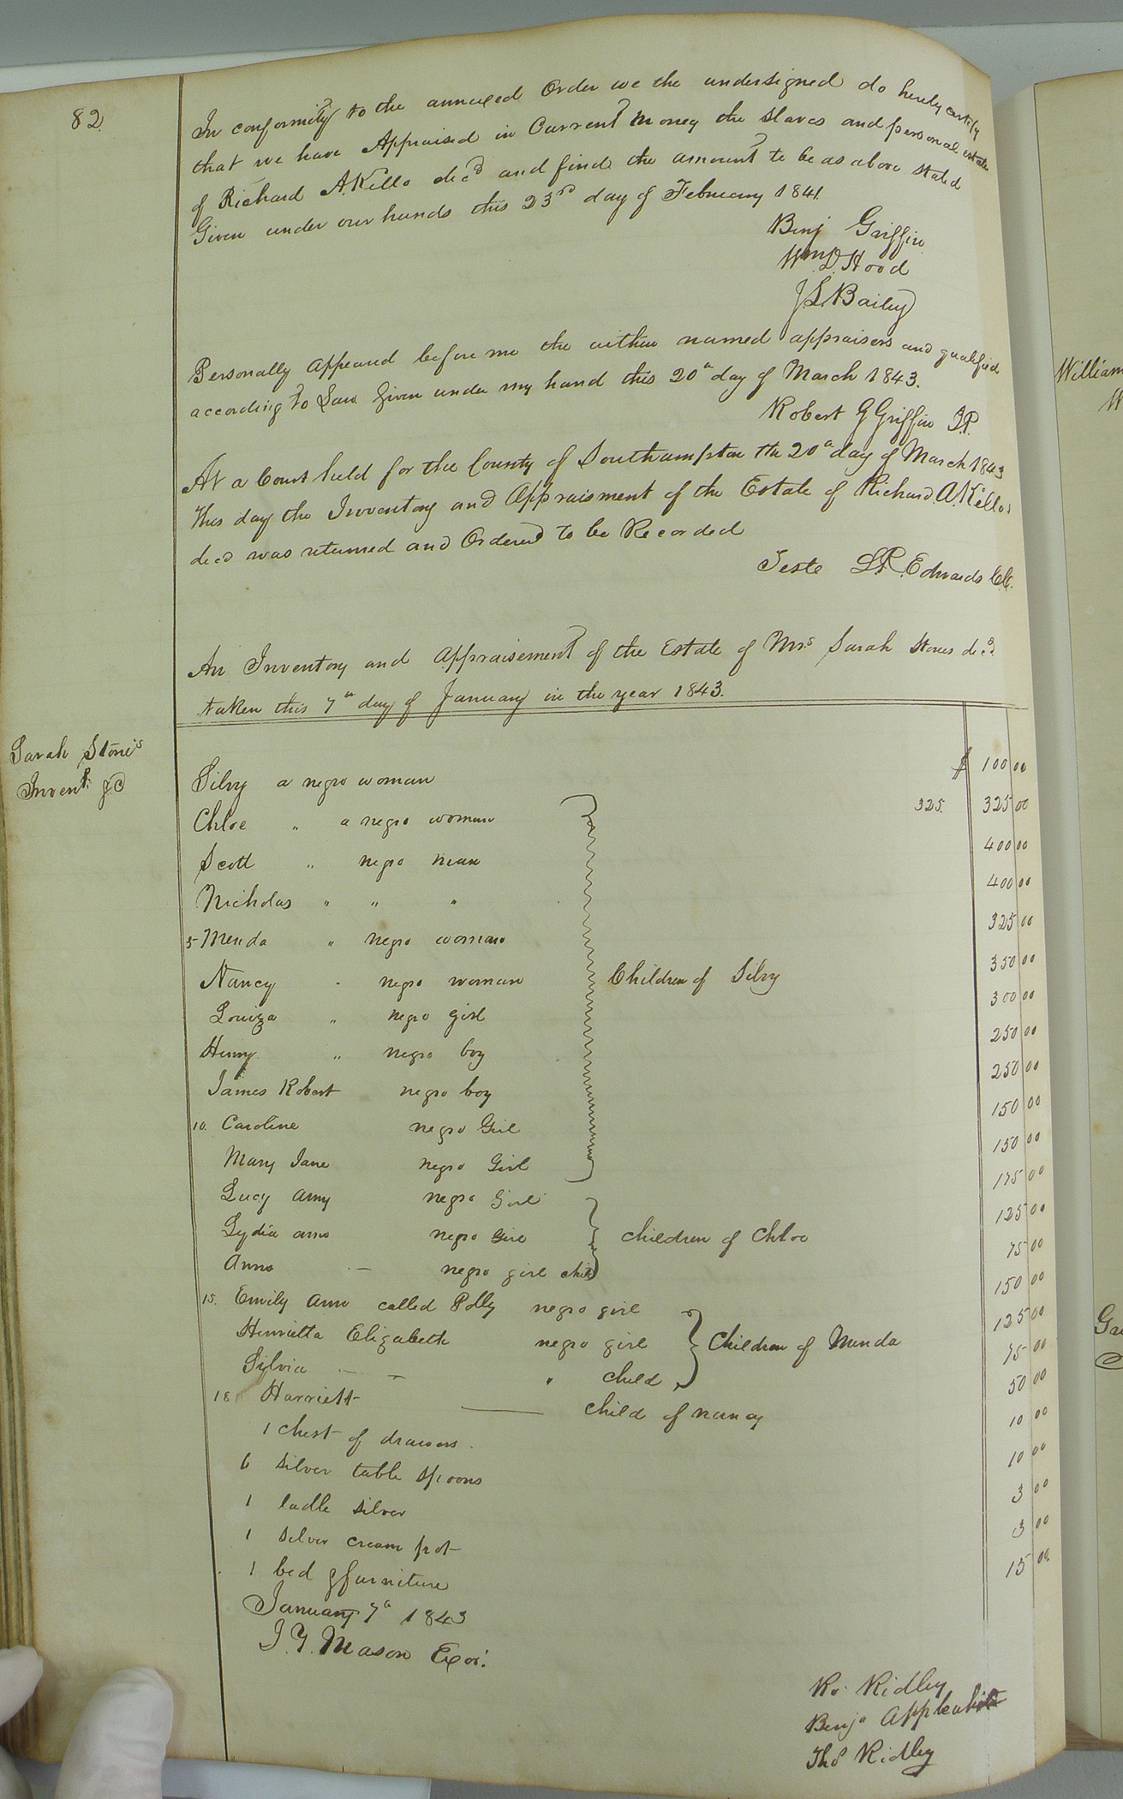 82
In conformity to the annexed Order we the undersigned do hereby certify
that we have Appraised in Current money the slaves and personal estate
of Richard A. Kello decd and find the amount to be as above stated
Given under our hands this 23rd day of February 1841.
Benj Griffin
Wm D. Hood
J. L. Bailey
Personally appeared before me the within named appraisers and qualified
according to Law Given under my hand this 20th day of March 1843.
Robert G Griffin J.P.
At a Court held for the County of Southampton the 20th day of March 1843
This day the Inventory and Appraisment of the Estate of Richard A. Kello
decd was returned and Ordered to be Recorded
Teste L. R. Edwards Clk.
An Inventory and Appraisement of the Estate of Mrs Sarah Stones decd
taken this 7th day of January in the year 1843.
Sarah Stone's
Invent. &c
Silvy a negro woman $ 100 00
Chloe " a negro woman 325. 325 00
Scott " negro man 400 00
Nicholas " " " 400 00
5 Menda " negro woman 325 00
Nancy " negro woman Children of Silvy 350 00
Louiza " negro girl 300 00
Henry " negro boy 250 00
James Robert negro boy 250 00
10. Caroline negro Girl 150 00
Mary Jane negro Girl 150 00
Lucy Amy negro Girl 175 00
Lydia ann negro Girl children of Chloe 125 00
Anna — negro girl child 75 00
15. Emily Ann called Polly negro girl 150 00
Henrietta Elizabeth negro girl Children of Menda 125 00
Silvia — — " child 75 00
18 Harriett — child of nancy 50 00
1 chest of drawers 10 00
6 silver table spoons 10 00
1 ladle silver 3 00
1 silver cream pot 3 00
1 bed & furniture 15 00
January 7th 1843
J. Y. Mason Exor.
Ro. Ridley
Benja Applewhite
Tho Ridley
William
W